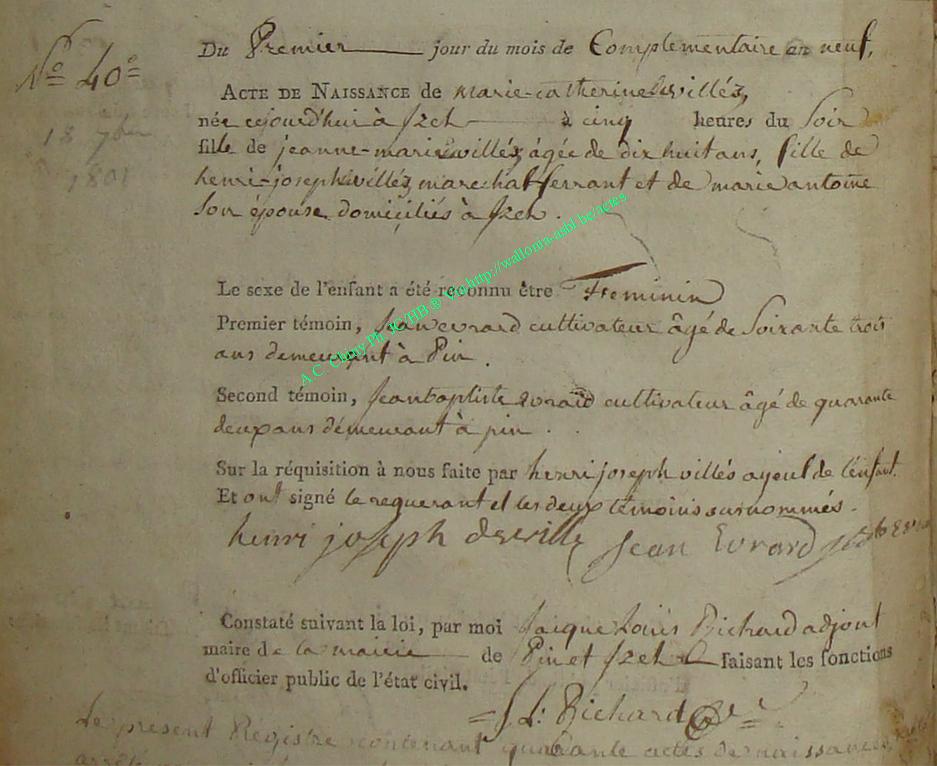 N.º 40.º
18 7bre
1801
Du Premier jour du mois de Complementaire an neuf,
ACTE DE NAISSANCE de marie-catherine devilléz,
née cejourd'hui à Izel à cinq heures du Soir
fille de jeanne-marie villéz, âgée de dix huit ans, fille de
henri-joseph villéz, marechal ferrant et de marie antoine
Son épouse domiciliés à Izel.
Le sexe de l'enfant a été reconnu être Feminin
Premier témoin, Jean evrard cultivateur âgé de Soixante trois
ans demeurant à Pin.
Second témoin, Jean baptiste evrard cultivateur âgé de quarante
deux ans démeurant à pin.
Sur la réquisition à nous faite par henri joseph villés ayeul de l'enfant.
Et ont signé le requerant et les deux témoins surnommés.
henri joseph deville Jean Evrard
Constaté suivant la loi, par moi Jacque Louis Richard adjoint
maire de la mairie de Pin et Izel faisant les fonctions
d'officier public de l'état civil.
J L: Richard
Le present Registre contenant quarante actes de naissances
A.C. Chiny Ph. JC/HB ® V.http://wallonia-asbl.be/actes